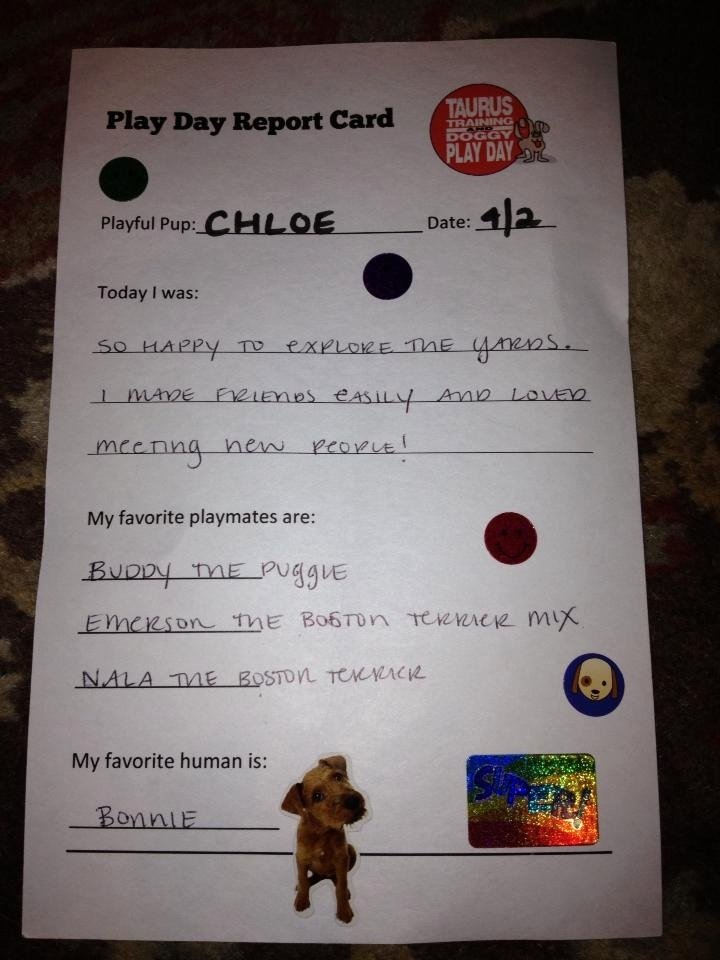 Play Day Report Card
TAURUS
TRAINING
AND
DOGGY
PLAY DAY
Playful Pup: CHLOE Date: 4/2
Today I was:
SO HAPPY TO EXPLORE THE YARDS.
I MADE FRIENDS EASILY AND LOVED
MEETING NEW PEOPLE!
My favorite playmates are:
BUDDY THE PUGGLE
EMERSON THE BOSTON TERRIER MIX
NALA THE BOSTON TERRIER
My favorite human is:
BONNIE
SUPER!